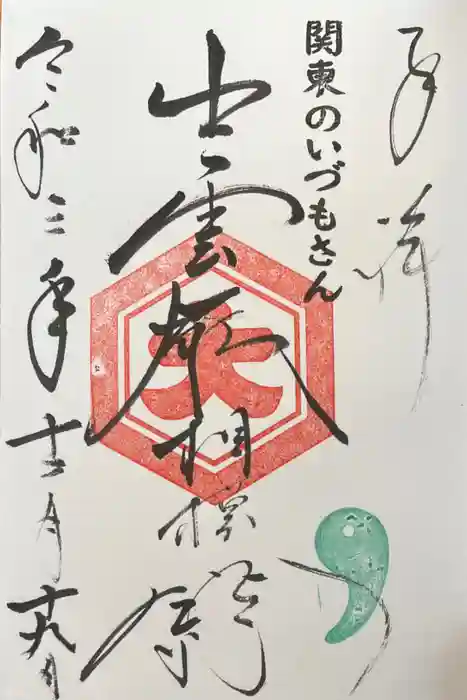 奉拝
関東のいづもさん
出雲
大
相模
分祠
令和三年十二月十九日